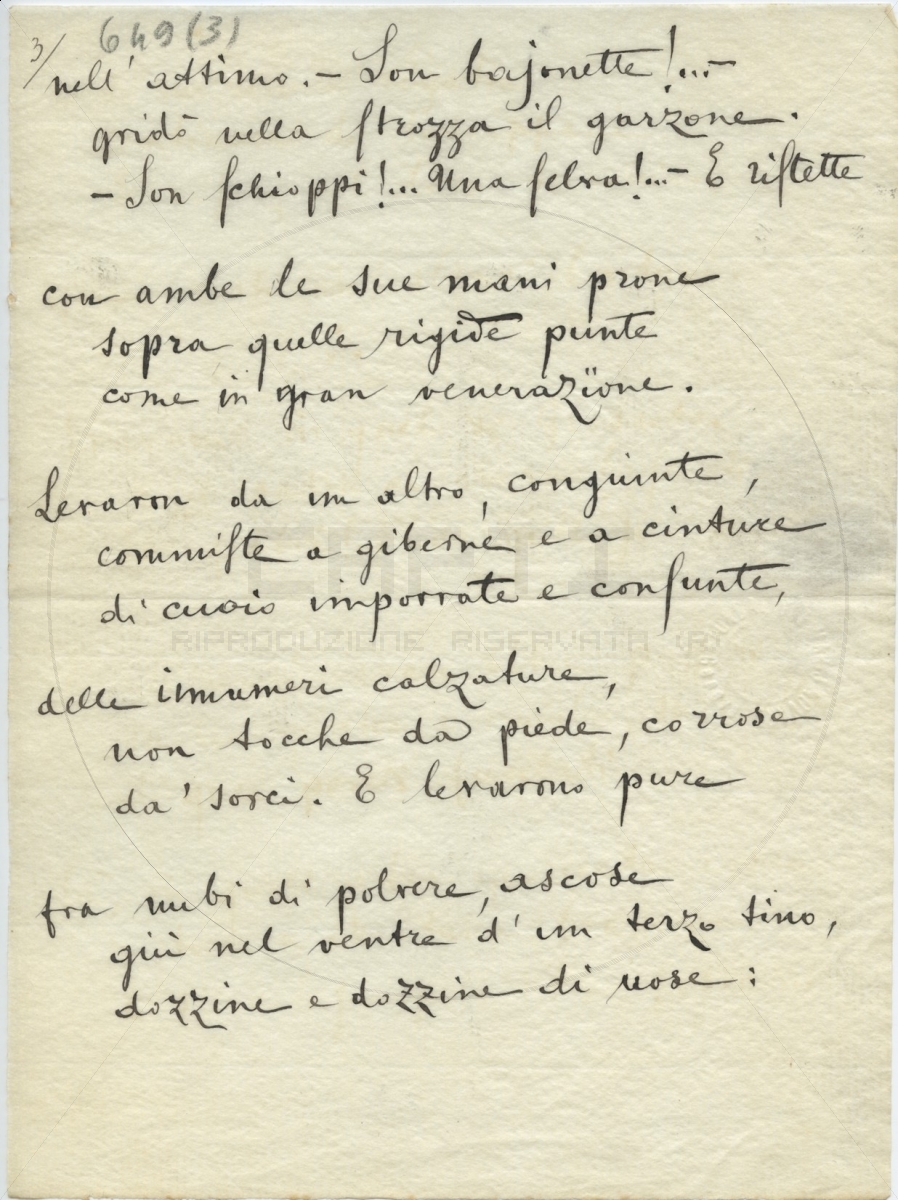 3/ 649(3)
nell' attimo. – Son bajonette!...–
gridò nella strozza il garzone.
– Son schioppi!... Una selva!...– E ristette
con ambe le sue mani prone
sopra quelle rigide punte
come in gran venerazïone.
Levaron da un altro, congiunte,
commiste a giberne e a cinture
di cuoio imporrate e consunte,
delle innumeri calzature,
non tocche da piede, corrose
da' sorci. E levarono pure
fra nubi di polvere, ascose
giù nel ventre d' un terzo tino,
dozzine e dozzine di uose:
RIPRODUZIONE RISERVATA (R)